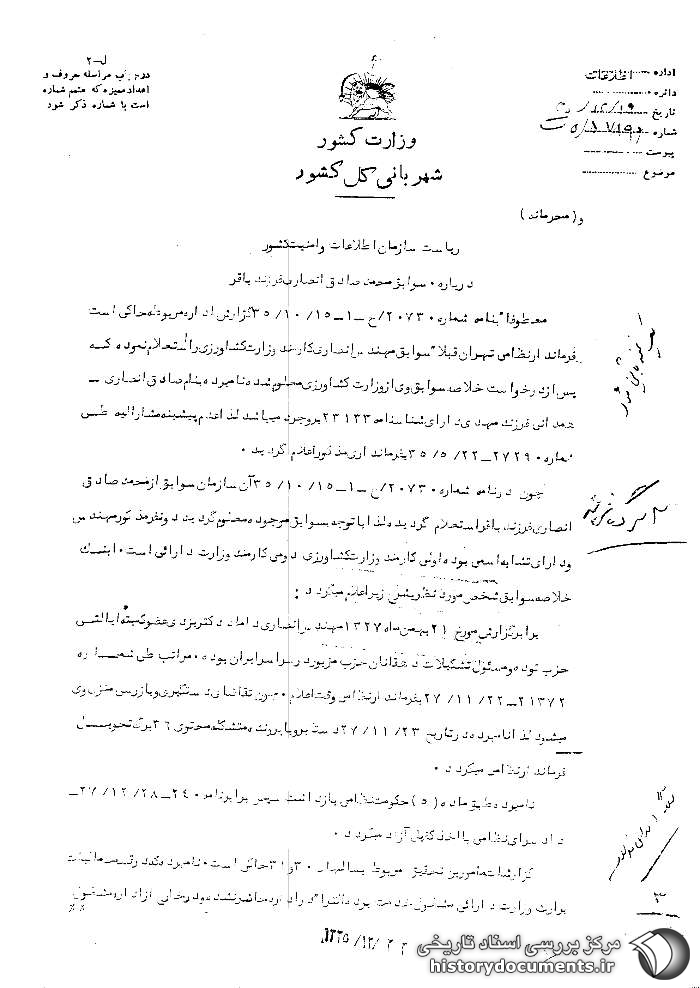 ل-۲
در جواب مراسله حروف و
اعداد ممیزه که متمم شماره
است با شماره ذکر شود
اداره اطلاعات
دائره
تاریخ
شماره
پیوست
موضوع
وزارت کشور
شهربانی کل کشور
و (محرمانه)
ریاست سازمان اطلاعات و امنیت کشور
درباره ۰ سوابق محمد صادق انصاری فرزند باقر
معطوفا بنامه شماره ۲۰۷۳۰/ح-۱-۱۵/۱۰/۳۵ گزارش اداره مربوطه حاکی است
فرماندار نظامی تهران قبلا سوابق مهندس انصاری کارمند وزارت کشاورزی را استعلام نموده که
پس از درخواست خلاصه سوابق وی از وزارت کشاورزی معلوم شده نامبرده بنام صادق انصاری -
همدانی فرزند مهدی دارای شناسنامه ۲۳۱۳۳ بروجرد میباشد لذا عدم پیشینه مشارالیه طی
شماره ۲۷۲۹-۲۲/۵/۳۵ بفرمانداری مذکور اعلام گردید ۰
چون در نامه شماره ۲۰۷۳۰/ح-۱-۱۵/۱۰/۳۵ آن سازمان سوابق از محمد صادق
انصاری فرزند باقر استعلام گردیده لذا با توجه بسوابق موجوده معلوم گردید دو نفر مذکور مهندس
و دارای تشابه اسمی بوده اولی کارمند وزارت کشاورزی دومی کارمند وزارت دارائی است ۰ اینک
خلاصه سوابق شخص مورد نظر بشرح زیر اعلام میگردد :
برابر گزارش مورخ ۲۱ بهمن ماه ۱۳۲۷ مهندس انصاری داماد دکتر یزدی عضو کمیته ایالتی
حزب توده و مسئول تشکیلات دهقانان حزب مزبور در سراسر ایران بوده ۰ مراتب طی شماره
۲۱۳۷۲-۲۲/۱۱/۲۷ بفرماندار نظامی وقت اعلام ۰ چون تقاضای دستگیری و بازرسی منزل وی
میشود لذا نامبرده در تاریخ ۲۳/۱۱/۲۷ دستگیر و با پرونده متشکله محتوی ۳۶ برگ تحویل
فرماندار نظامی میگردد ۰
نامبرده طبق ماده (۵) حکومت نظامی بازداشت سپس برابر نامه ۲۴۰-۲۸/۱۲/۲۷-
دادسرای نظامی با اخذ کفیل آزاد میگردد ۰
گزارشات مأمورین تحقیق مربوط بسالهای ۳۰ و ۳۱ حاکی است ۰ نامبرده که در قسمت مالیات
بر ارث وزارت دارائی مشغول خدمت بود در اداره حاضر نشده و در خارج از اداره مشغول
مرکز بررسی اسناد تاریخی
historydocuments.ir